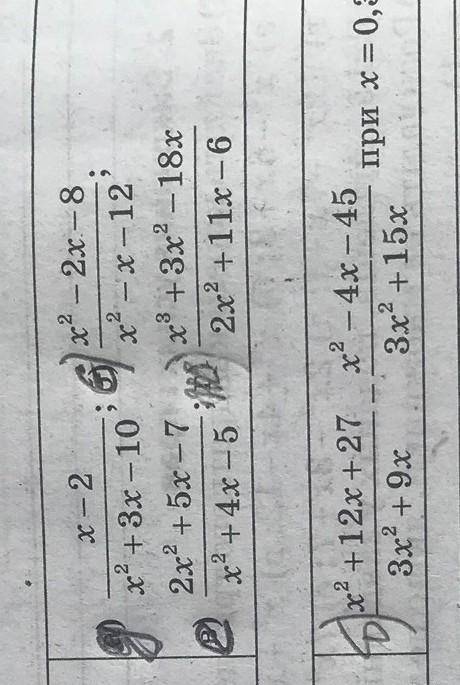 (x - 2)/(x² + 3x - 10); б) (x² - 2x - 8)/(x² - x - 12);
(2x² + 5x - 7)/(x² + 4x - 5); (x³ + 3x² - 18x)/(2x² + 11x - 6)
б) (x² + 12x + 27)/(3x² + 9x) - (x² - 4x - 45)/(3x² + 15x) при x = 0,